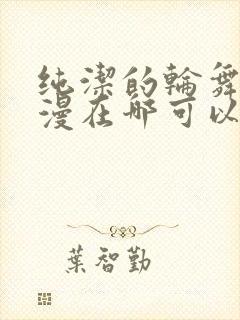 纯潔的輪舞
漫在哪可以
葉智勤